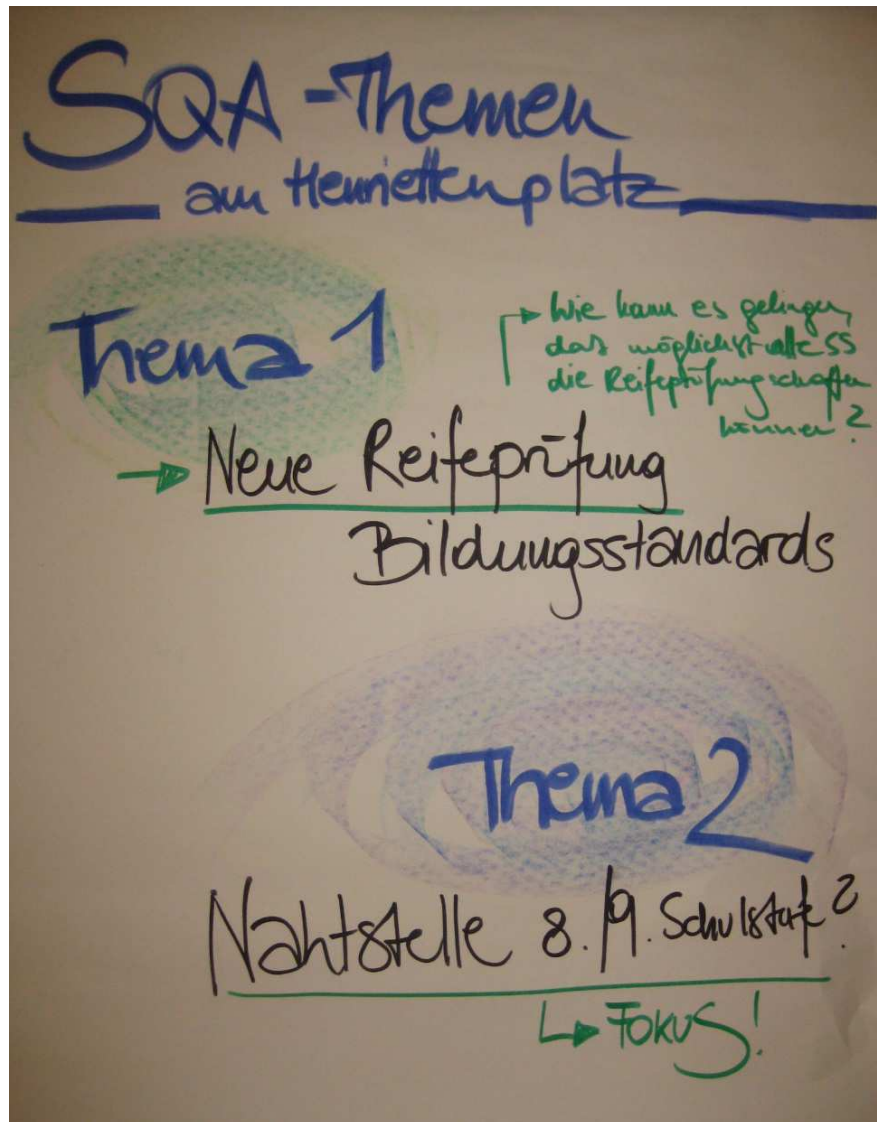 SQA-Themen
am Henriettenplatz
Thema 1
Wie kann es gelingen,
das möglichst alle SS
die Reifeprüfung schaffen
können?
→ Neue Reifeprüfung
Bildungsstandards
Thema 2
Nahtstelle 8./9. Schulstufe?
FOKUS!